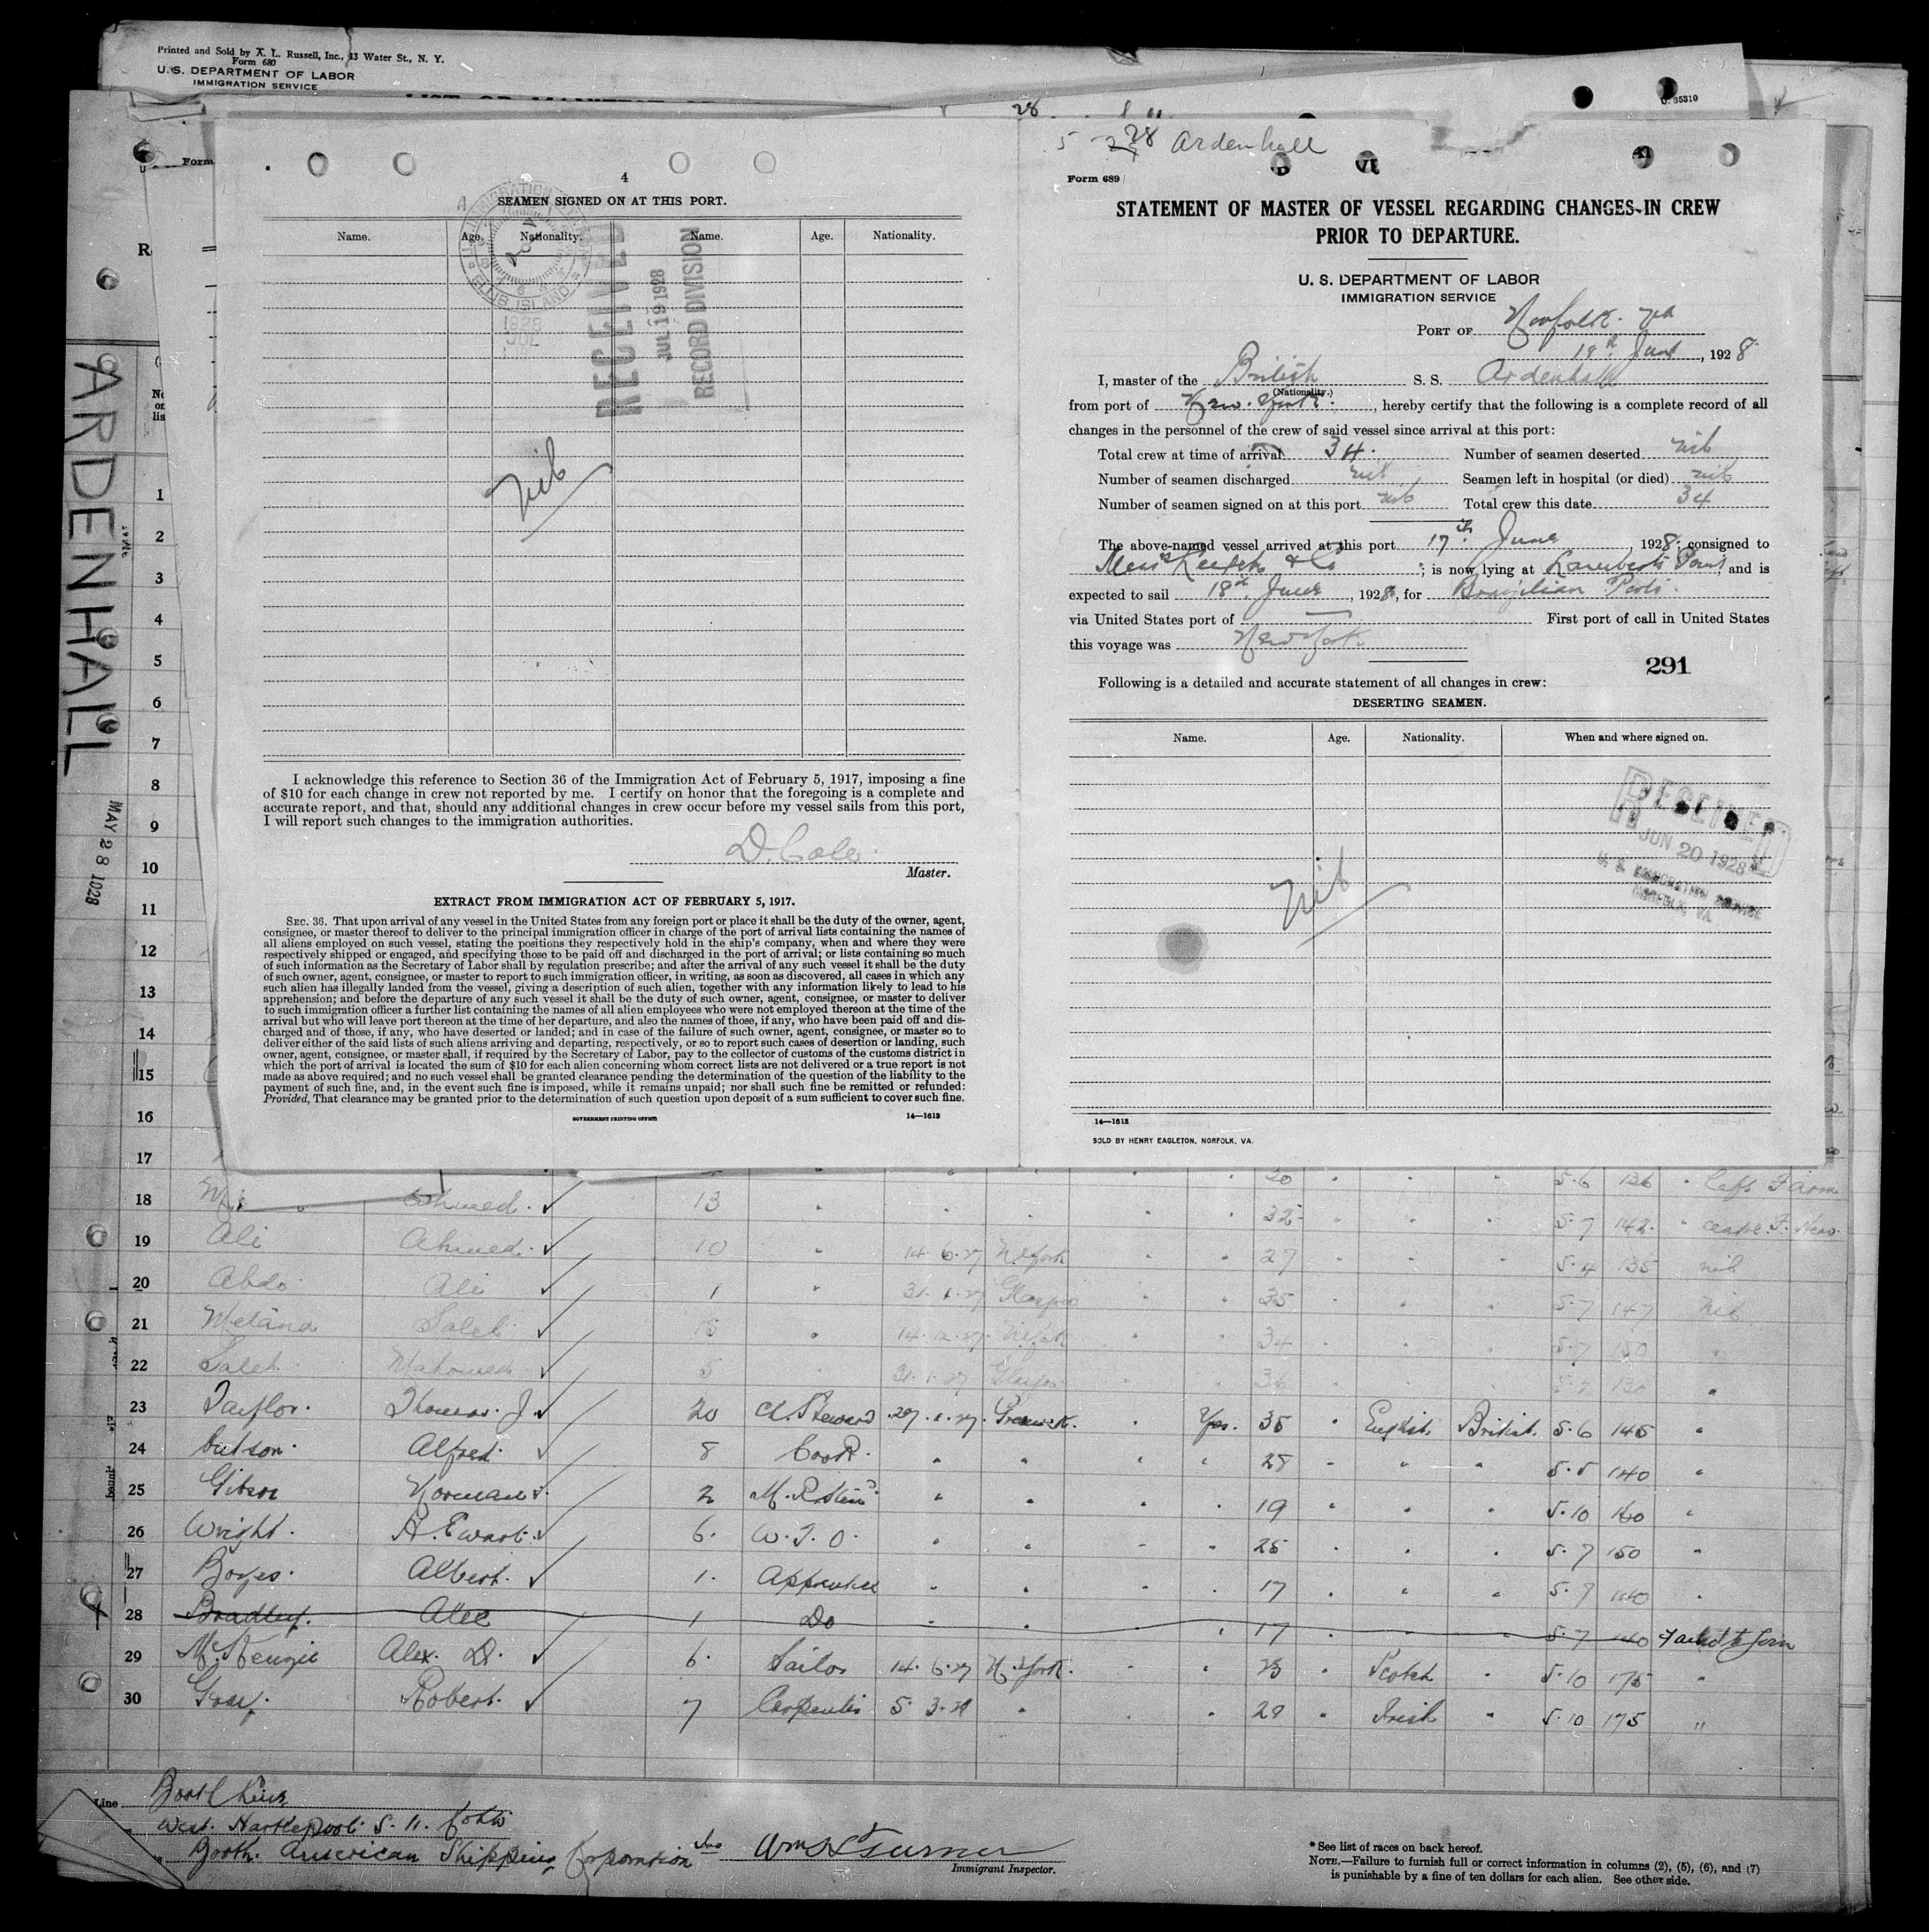 Printed and Sold by A. L. Russell, Inc., 43 Water St., N. Y.
Form 680
U. S. DEPARTMENT OF LABOR
IMMIGRATION SERVICE
U. 35310
ARDENHALL
MAY 28 1928
Form
4
SEAMEN SIGNED ON AT THIS PORT.
Name. Age. Nationality. Name. Age. Nationality.
ELLIS ISLAND
1928
JUL
RECEIVED
JUL 19 1928
RECORD DIVISION
Nil
I acknowledge this reference to Section 36 of the Immigration Act of February 5, 1917, imposing a fine
of $10 for each change in crew not reported by me. I certify on honor that the foregoing is a complete and
accurate report, and that, should any additional changes in crew occur before my vessel sails from this port,
I will report such changes to the immigration authorities.
D. Cole.
Master.
EXTRACT FROM IMMIGRATION ACT OF FEBRUARY 5, 1917.
SEC. 36. That upon arrival of any vessel in the United States from any foreign port or place it shall be the duty of the owner, agent,
consignee, or master thereof to deliver to the principal immigration officer in charge of the port of arrival lists containing the names of
all aliens employed on such vessel, stating the positions they respectively hold in the ship's company, when and where they were
respectively shipped or engaged, and specifying those to be paid off and discharged in the port of arrival; or lists containing so much
of such information as the Secretary of Labor shall by regulation prescribe; and after the arrival of any such vessel it shall be the duty
of such owner, agent, consignee, or master to report to such immigration officer, in writing, as soon as discovered, all cases in which any
such alien has illegally landed from the vessel, giving a description of such alien, together with any information likely to lead to his
apprehension; and before the departure of any such vessel it shall be the duty of such owner, agent, consignee, or master to deliver
to such immigration officer a further list containing the names of all alien employees who were not employed thereon at the time of the
arrival but who will leave port thereon at the time of her departure, and also the names of those, if any, who have been paid off and dis-
charged and of those, if any, who have deserted or landed; and in case of the failure of such owner, agent, consignee, or master so to
deliver either of the said lists of such aliens arriving and departing, respectively, or so to report such cases of desertion or landing, such
owner, agent, consignee, or master shall, if required by the Secretary of Labor, pay to the collector of customs of the customs district in
which the port of arrival is located the sum of $10 for each alien concerning whom correct lists are not delivered or a true report is not
made as above required; and no such vessel shall be granted clearance pending the determination of the question of the liability to the
payment of such fine, and, in the event such fine is imposed, while it remains unpaid; nor shall such fine be remitted or refunded:
Provided, That clearance may be granted prior to the determination of such question upon deposit of a sum sufficient to cover such fine.
GOVERNMENT PRINTING OFFICE 14—1613
28 Ardenhall
Form 689
STATEMENT OF MASTER OF VESSEL REGARDING CHANGES IN CREW
PRIOR TO DEPARTURE.
U. S. DEPARTMENT OF LABOR
IMMIGRATION SERVICE
PORT OF Norfolk. Va
June, 1928
I, master of the British S. S. Ardenhall
(Nationality.)
from port of New York, hereby certify that the following is a complete record of all
changes in the personnel of the crew of said vessel since arrival at this port:
Total crew at time of arrival 34. Number of seamen deserted nil
Number of seamen discharged nil Seamen left in hospital (or died) nil
Number of seamen signed on at this port nil Total crew this date 34
The above-named vessel arrived at this port 17th June 1928; consigned to
; is now lying at Lamberts Point, and is
expected to sail 18th June, 1928, for Brazilian Ports.
via United States port of — First port of call in United States
this voyage was New York
291
Following is a detailed and accurate statement of all changes in crew:
DESERTING SEAMEN.
Name. Age. Nationality. When and where signed on.
JUN 20 1928
U. S. IMMIGRATION SERVICE
NORFOLK, VA.
Nil
14—1613
SOLD BY HENRY EAGLETON, NORFOLK, VA.
1
2
3
4
5
6
7
8
9
10
11
12
13
14
15
16
17
20 5.6 136
18 Ahmed. 13 32 5.7 142
19 Ali Ahmed. 10 14.6.27 N. York 27 5.4 135 nil
20 Abdo Ali 1 35 5.7 147 nil
21 Saleh 14.12.27 N. York 34 5.7 150
22 Saleh Mahomed 5 36 5.7 130
23 Taylor. Thomas. J. 20 Ch. Steward Yes. 35 English British 5.6 145
24 Alfred. 8 Cook. 28 5.5 140
25 Gibson Norman 2 19 5.10 160
26 Wright. R. Ewart. 6. W. T. O. 25 5.7 150
27 Boyes. Albert. 1. Apprentice 17 5.7 140
28 Bradley. Alec 1 Do 17 5.7 140 Failed to join
29 McKenzie Alex. D. 6. Sailor 14.6.27 N. York. Scotch 5.10 175
30 Gray. Robert. 7 Carpenter 28 Irish 5.10 175
Line Booth Line
West Hartlepool S. N. Co
Booth American Shipping Corporation
Immigrant Inspector.
* See list of races on back hereof.
NOTE.—Failure to furnish full or correct information in columns (2), (5), (6), and (7)
is punishable by a fine of ten dollars for each alien. See other side.